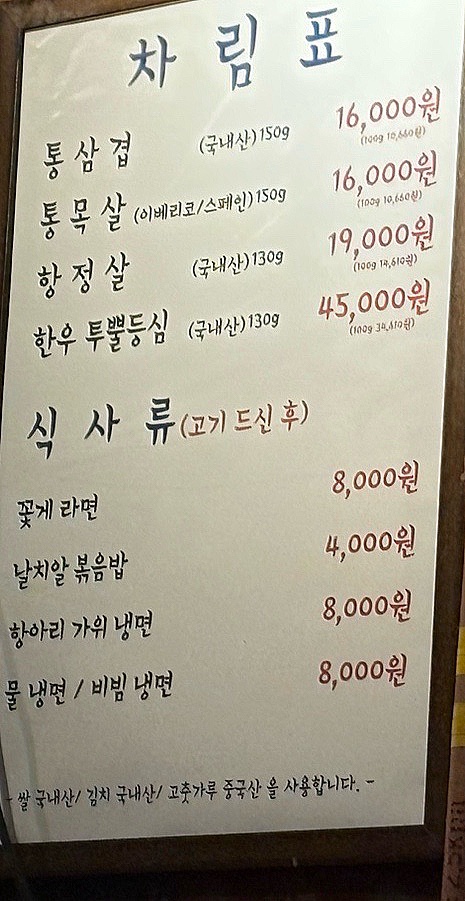 차림표
통삼겹 (국내산)150g 16,000원
(100g 10,660원)
통목살 (이베리코/스페인)150g 16,000원
(100g 10,660원)
항정살 (국내산)130g 19,000원
(100g 14,610원)
한우 투뿔등심 (국내산)130g 45,000원
(100g 34,610원)
식사류 (고기 드신 후)
꽃게 라면 8,000원
날치알 볶음밥 4,000원
항아리 가위 냉면 8,000원
물 냉면 / 비빔 냉면 8,000원
- 쌀 국내산/ 김치 국내산/ 고춧가루 중국산 을 사용합니다. -